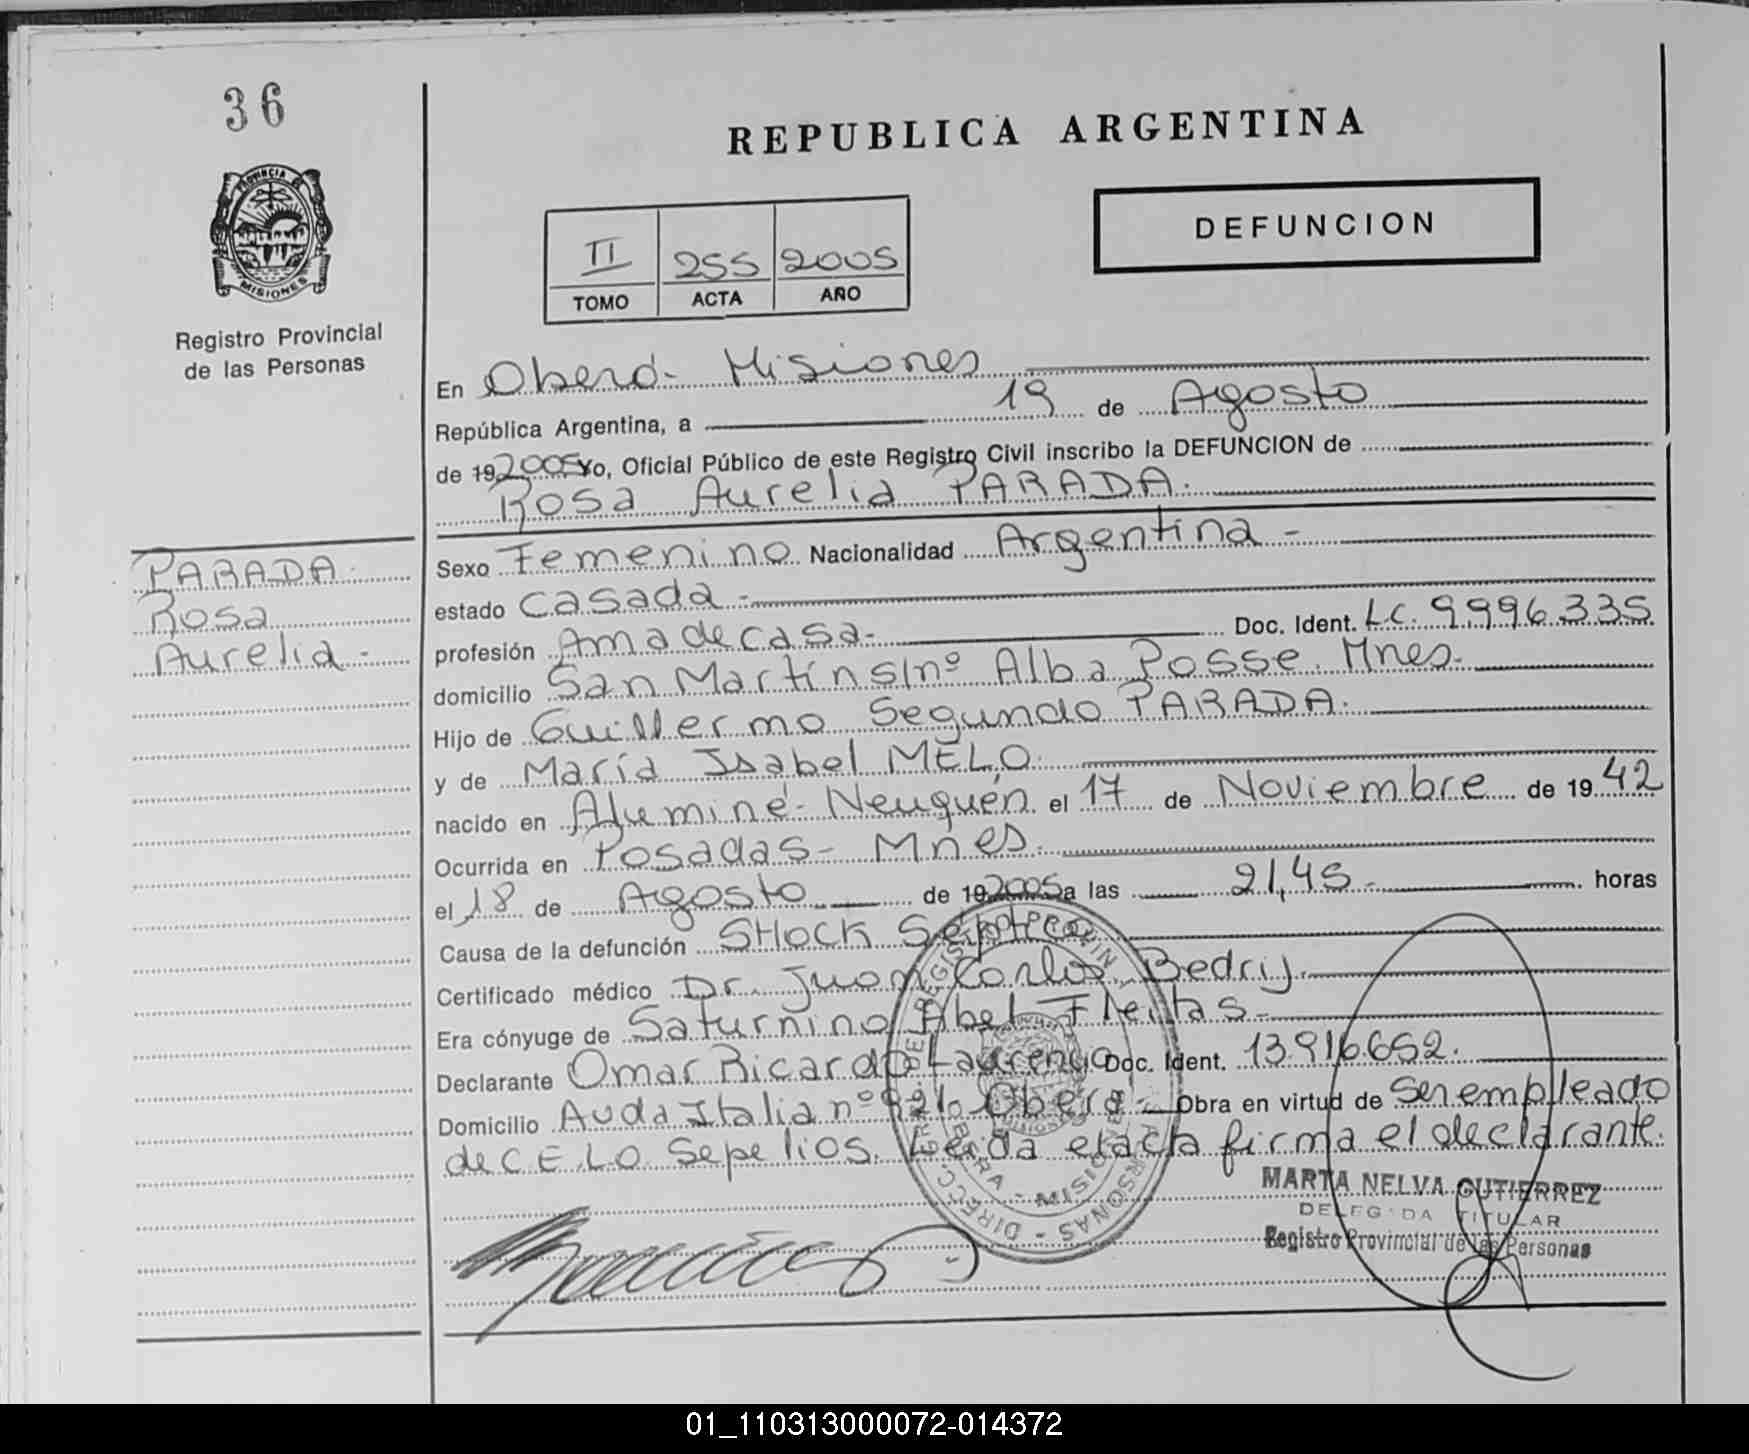 36
PROVINCIA DE
MISIONES
Registro Provincial
de las Personas
PARADA.
Rosa
Aurelia.-
REPUBLICA ARGENTINA
II 255 2005
TOMO ACTA AÑO
DEFUNCION
En Oberá- Misiones
República Argentina, a 19 de Agosto
de 192005 Yo, Oficial Público de este Registro Civil inscribo la DEFUNCION de
Rosa Aurelia PARADA.
Sexo Femenino Nacionalidad Argentina -
estado Casada -
profesión Ama de casa- Doc. Ident. LC. 9.996.335
domicilio San Martín s/nº Alba Posse. Mnes.
Hijo de Guillermo Segundo PARADA.
y de María Isabel MELO.
nacido en Aluminé- Neuquén el 17 de Noviembre de 19 42
Ocurrida en Posadas- Mnes.
el 18 de Agosto de 192005 a las 21,45.- horas
Causa de la defunción SHock Septico
Certificado médico Dr. Juan Carlos Bedrij.
Era cónyuge de Saturnino Abel Fleitas-
Declarante Omar Ricardo Laurencio Doc. Ident. 13.916.652.
Domicilio Avda Italia nº 921. Oberá- Obra en virtud de ser empleado
de C.E.L.O. Sepelios. Leída el acta firma el declarante.
MARTA NELVA GUTIERREZ
DELEGADA TITULAR
Registro Provincial de las Personas
01_110313000072-014372